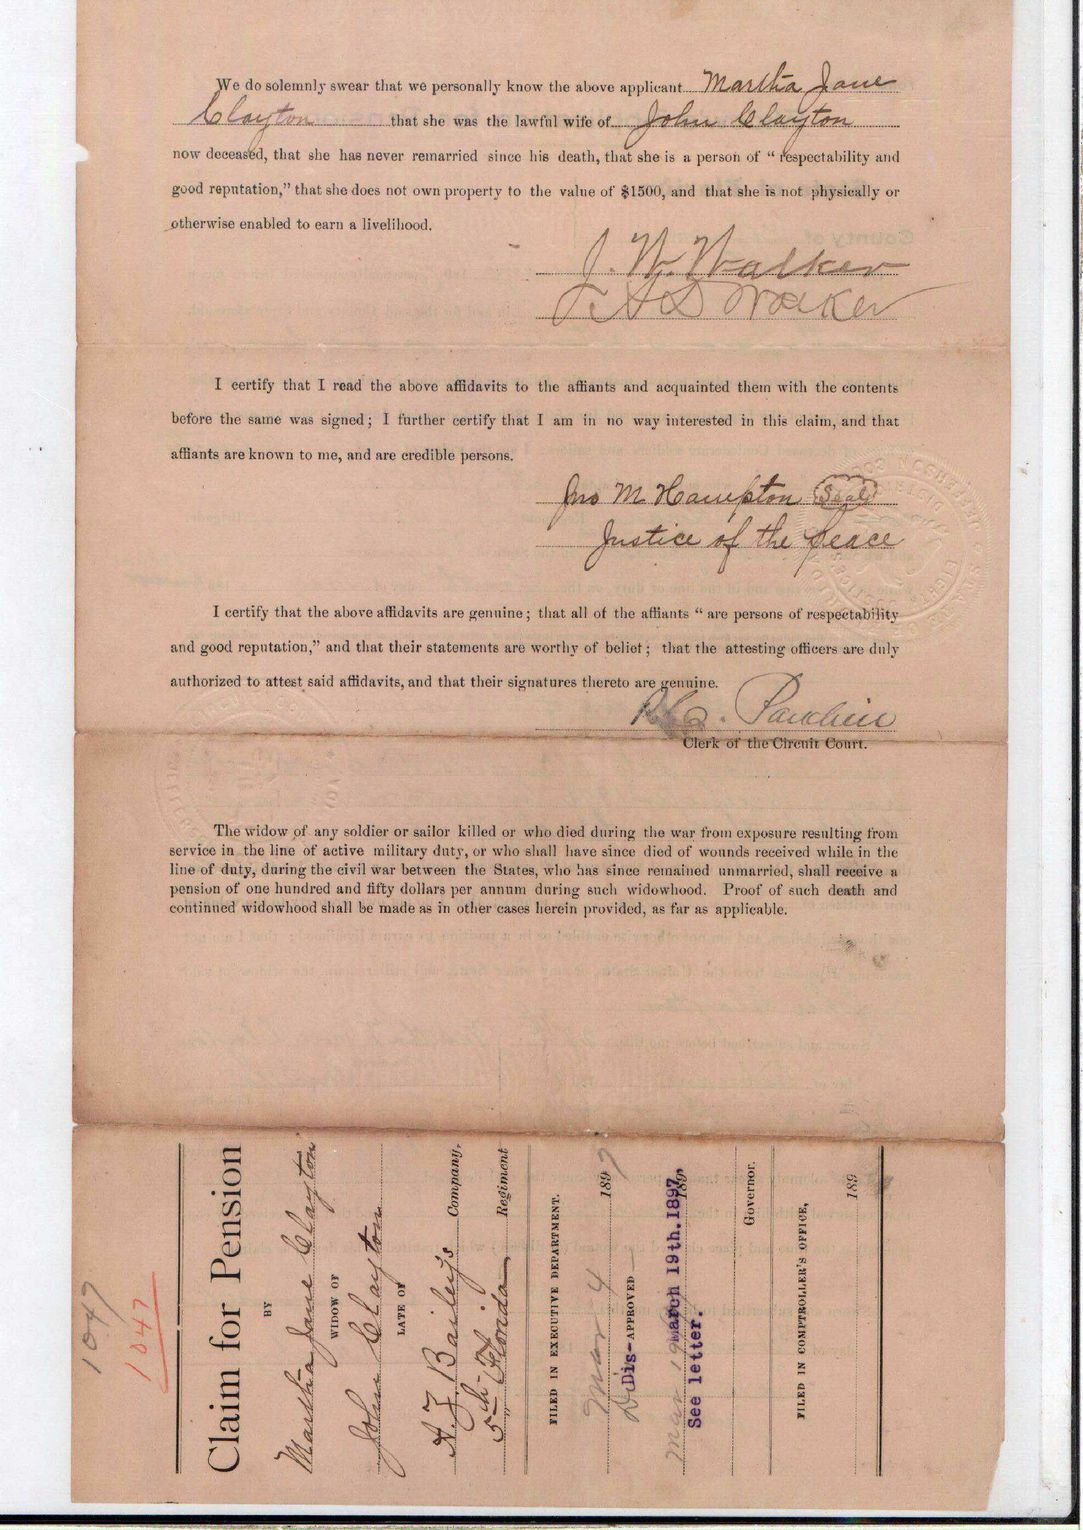 We do solemnly swear that we personally know the above applicant Martha Jane
Clayton that she was the lawful wife of John Clayton
now deceased, that she has never remarried since his death, that she is a person of “ respectability and
good reputation,” that she does not own property to the value of $1500, and that she is not physically or
otherwise enabled to earn a livelihood.
J. W. Walker
Walker
I certify that I read the above affidavits to the affiants and acquainted them with the contents
before the same was signed ; I further certify that I am in no way interested in this claim, and that
affiants are known to me, and are credible persons.
Jno M Hampton Seal
Justice of the Peace
I certify that the above affidavits are genuine ; that all of the affiants “ are persons of respectability
and good reputation,” and that their statements are worthy of belief ; that the attesting officers are duly
authorized to attest said affidavits, and that their signatures thereto are genuine.
Clerk of the Circuit Court.
The widow of any soldier or sailor killed or who died during the war from exposure resulting from
service in the line of active military duty, or who shall have since died of wounds received while in the
line of duty, during the civil war between the States, who has since remained unmarried, shall receive a
pension of one hundred and fifty dollars per annum during such widowhood. Proof of such death and
continued widowhood shall be made as in other cases herein provided, as far as applicable.
1047
1047
Claim for Pension
BY
Martha Jane Clayton
WIDOW OF
John Clayton
LATE OF
Bailey's Company,
5th Florida Regiment
FILED IN EXECUTIVE DEPARTMENT.
Mar 4 1897
Dis-APPROVED
March 19th. 1897.
See letter.
Governor.
FILED IN COMPTROLLER'S OFFICE,
189